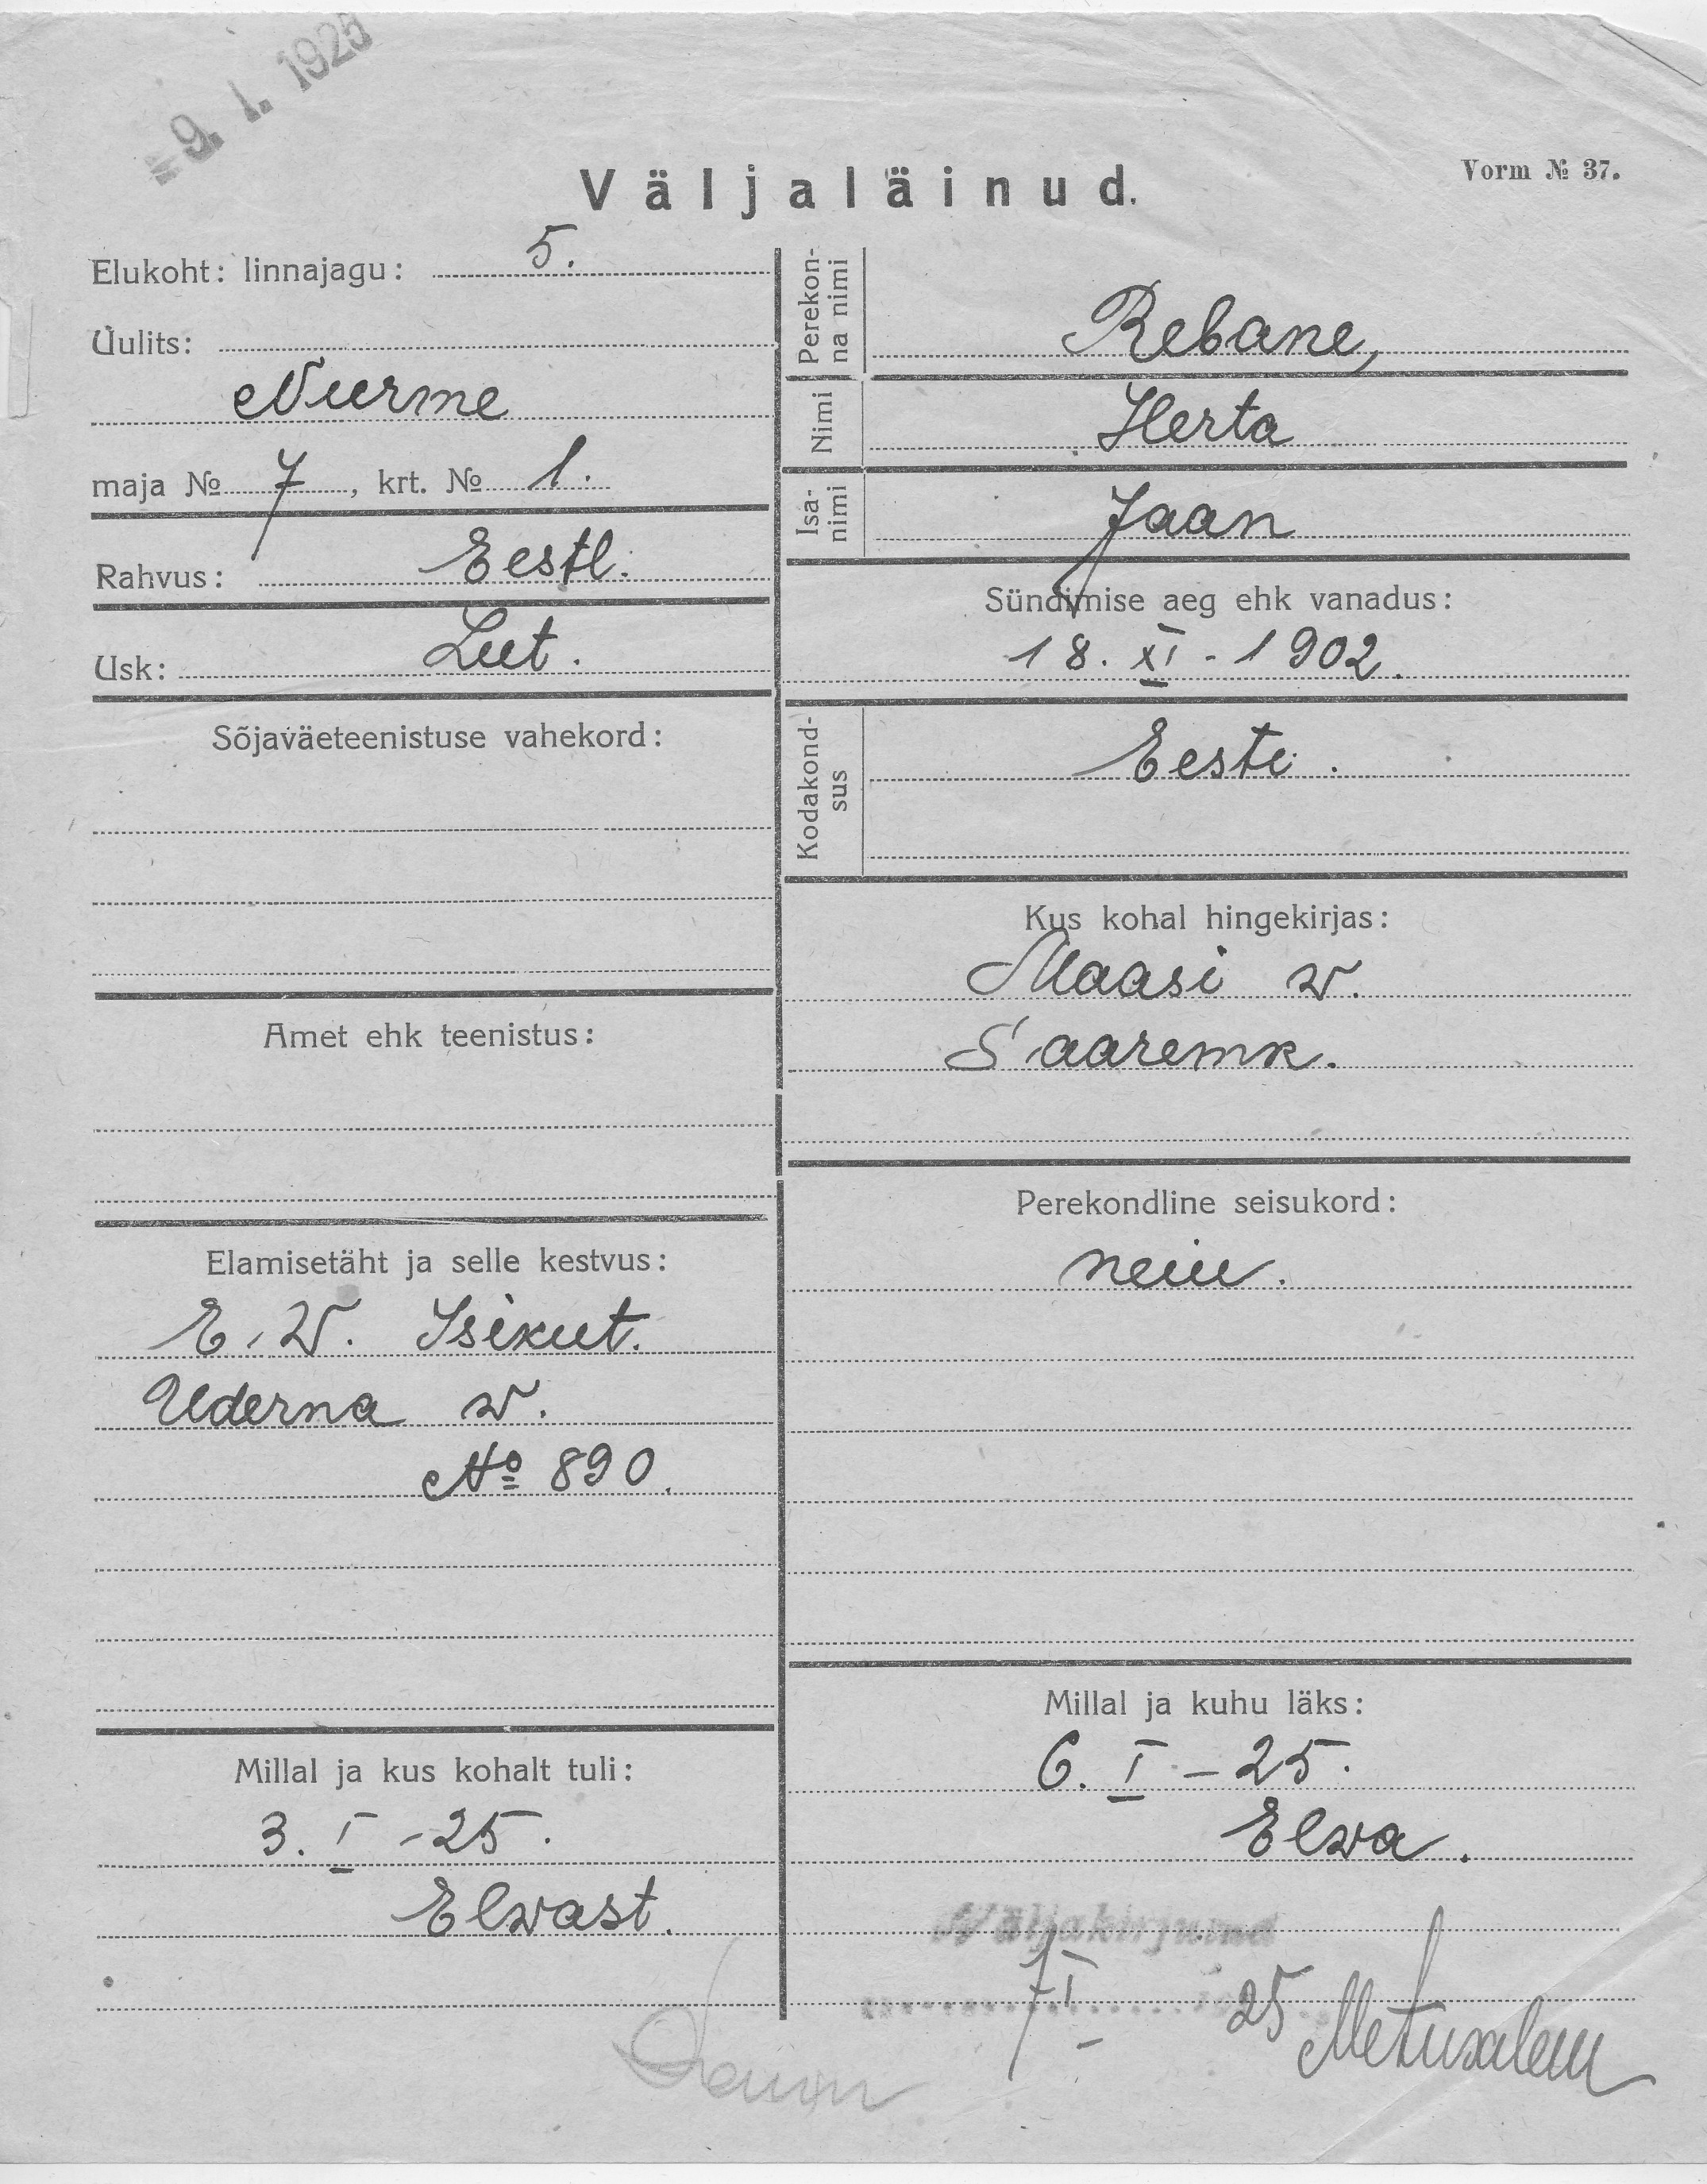 9. I. 1925
Väljaläinud.
Vorm № 37.
Elukoht: linnajagu: 5.
Uulits:
Nurme
maja № 7, krt. № 1.
Rahvus: Eestl.
Usk: Lut.
Sõjaväeteenistuse vahekord:
Amet ehk teenistus:
Elamisetäht ja selle kestvus:
E. W. Isikut.
Uderna w.
№ 890.
Millal ja kus kohalt tuli:
3. I - 25.
Elwast.
Perekon-
na nimi
Rebane,
Nimi
Herta
Isa-
nimi
Jaan
Sündimise aeg ehk vanadus:
18. XI - 1902.
Kodakond-
sus
Eesti.
Kus kohal hingekirjas:
Maasi w.
Saaremk.
Perekondline seisukord:
neiu.
Millal ja kuhu läks:
6. I - 25.
Elwa.
Wäljakirjutud
7 I 25 Metusalem